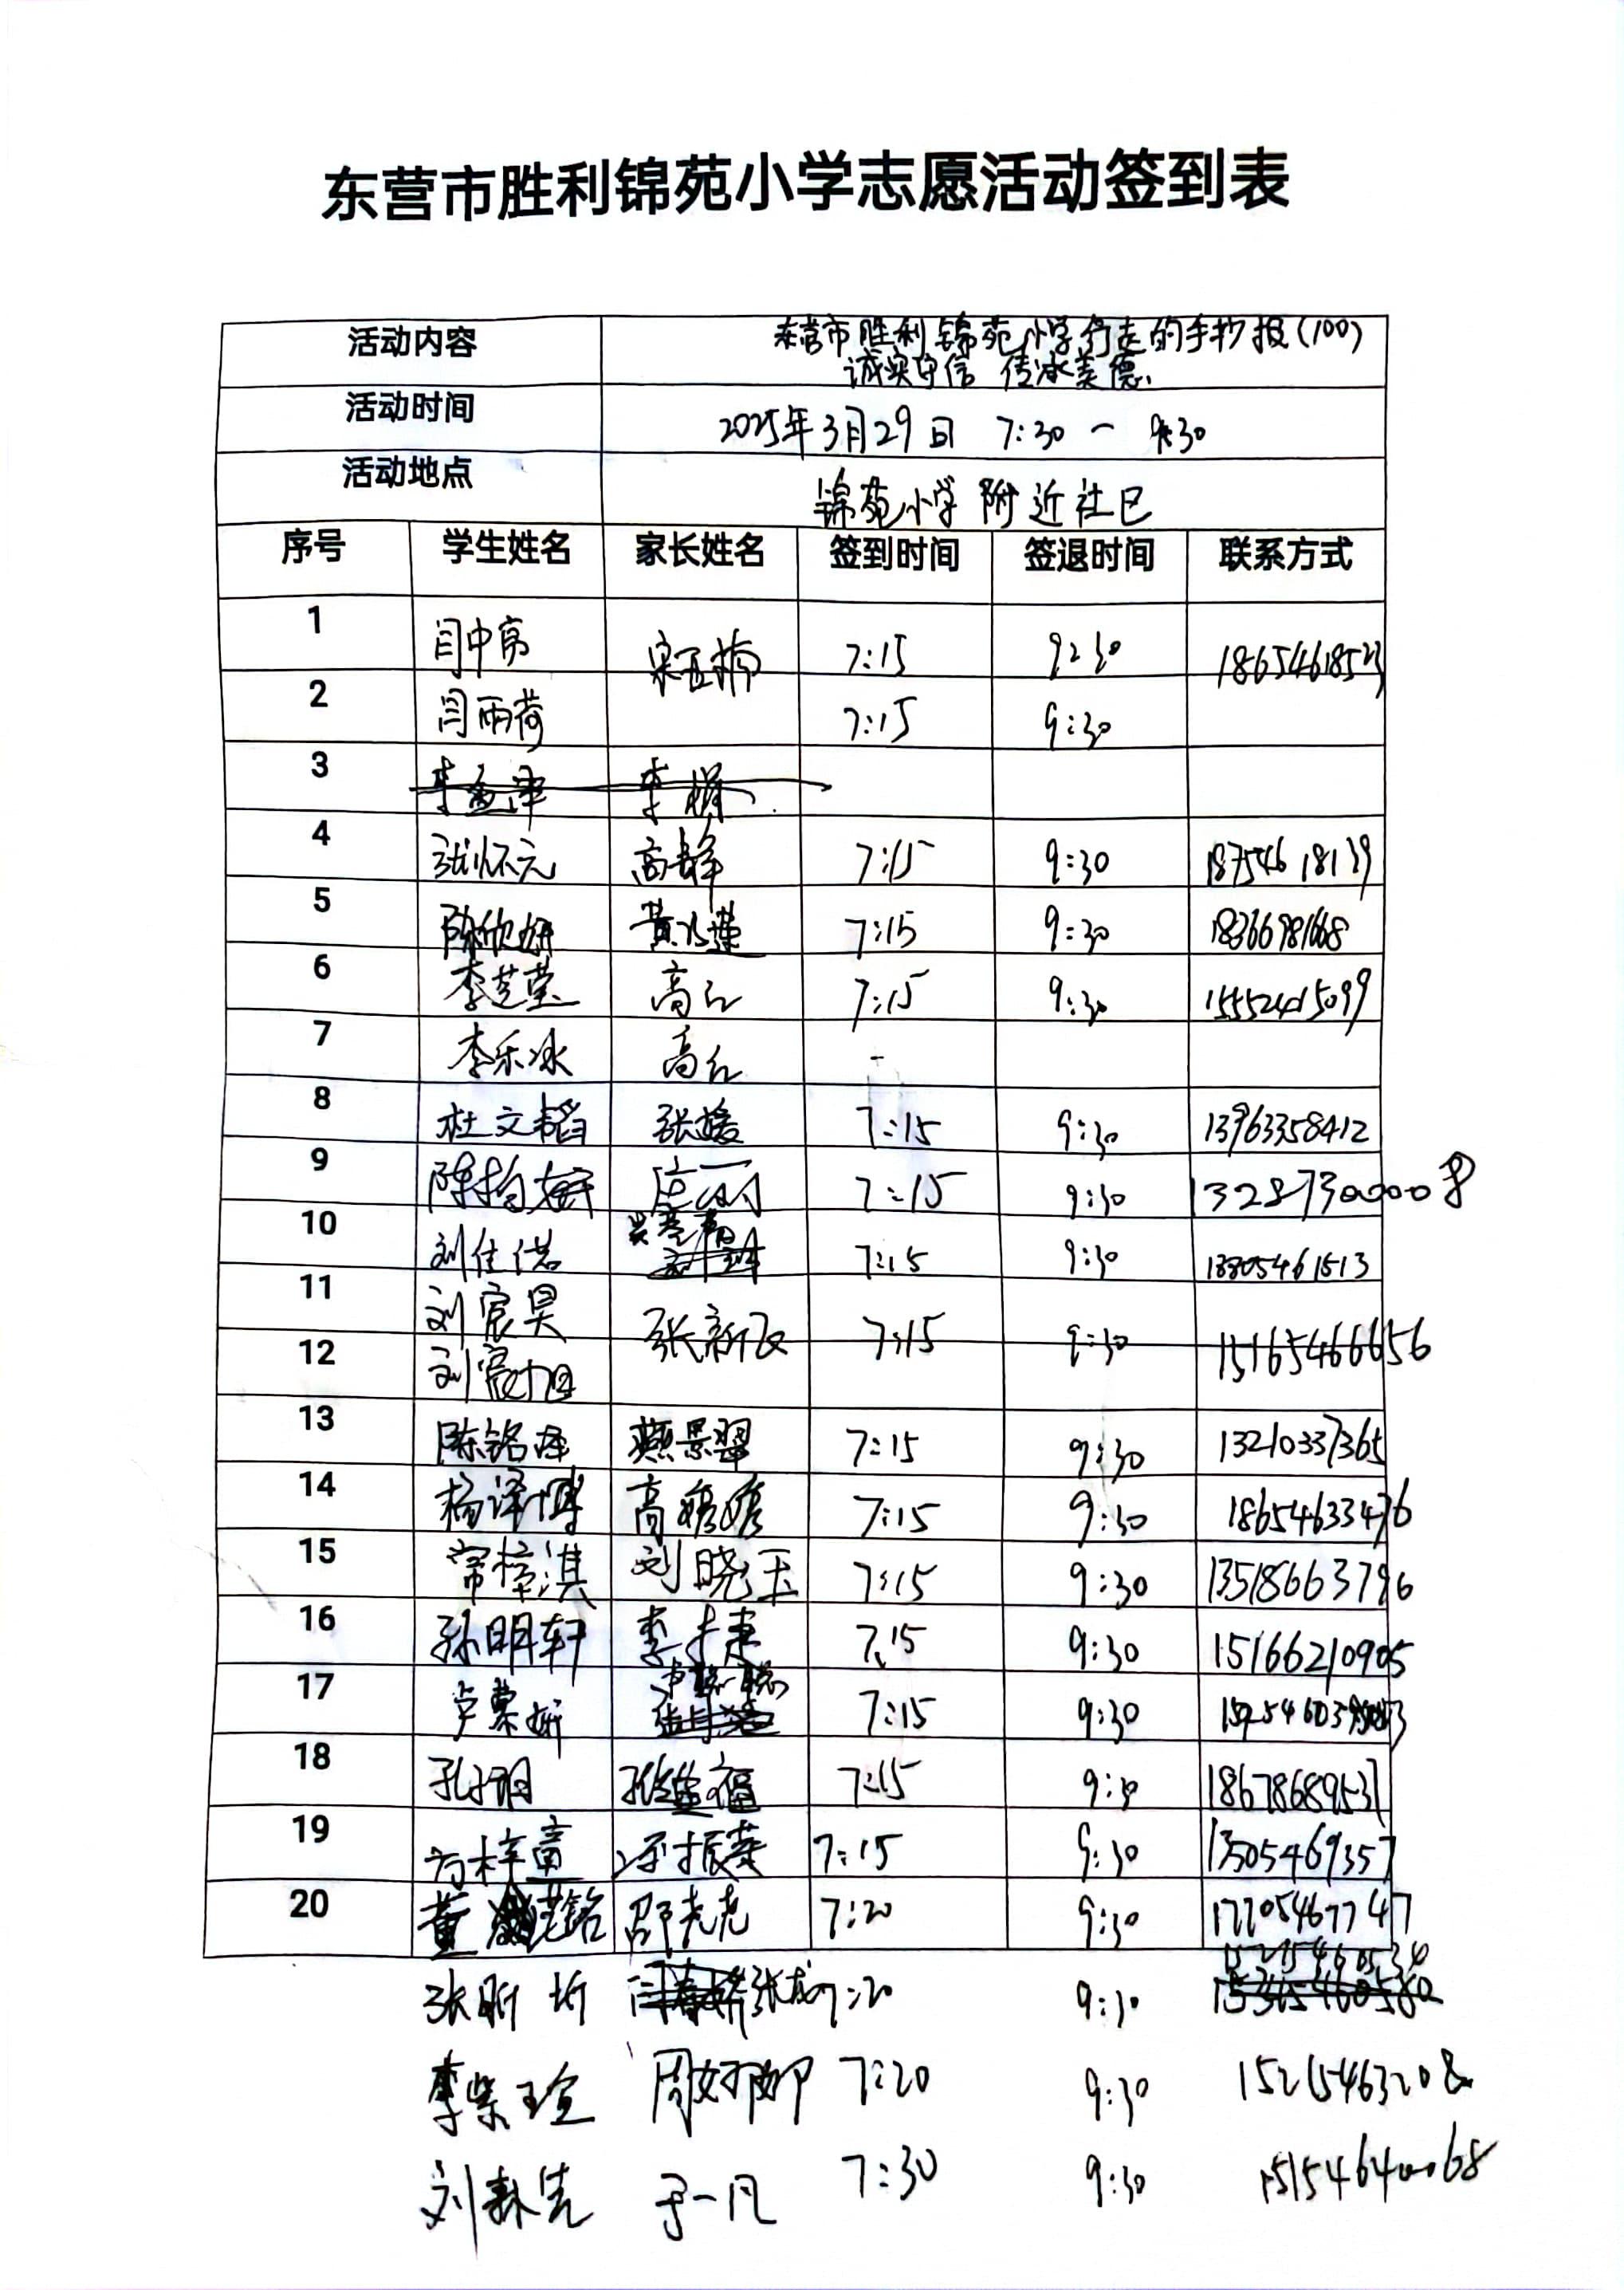 东营市胜利锦苑小学志愿活动签到表
活动内容 东营市胜利锦苑小学行走的手抄报(100)
诚实守信 传承美德
活动时间 2025年3月29日 7:30 — 9:30
活动地点 锦苑小学附近社区
序号 学生姓名 家长姓名 签到时间 签退时间 联系方式
1 闫中 7:15 9:30 18654618523
2 闫雨荷 7:15 9:30
3 李孟泽 李
4 张怀元 高 7:15 9:30 18754618139
5 陈欣妍 黄 7:15 9:30 18366981668
6 李芝莹 高红 7:15 9:30 15552415099
7 李乐冰 高红
8 杜文韬 张媛 7:15 9:30 13963358412
9 陈 庄丽 7:15 9:30
10 刘佳诺 7:15 9:30 13805461513
11 刘宸昊 张新 7:15 9:30 15165466656
12 刘宸旭
13 陈铭泽 燕景翠 7:15 9:30 13210337365
14 杨泽博 高媛媛 7:15 9:30 18654633476
15 常梓淇 刘晓玉 7:15 9:30 13518663796
16 孙明轩 李 7:15 9:30 15166210905
17 卢 妍 卢聪聪 7:15 9:30
18 孔 福 7:15 9:30 18678689531
19 振英 7:15 9:30 13505469357
20 董 铭 邵亮亮 7:20 9:30 17705467747
张昕圻 张 7:20 9:30
李紫瑄 周 7:20 9:30 15215463208
刘 于一凡 7:30 9:30 15154640068